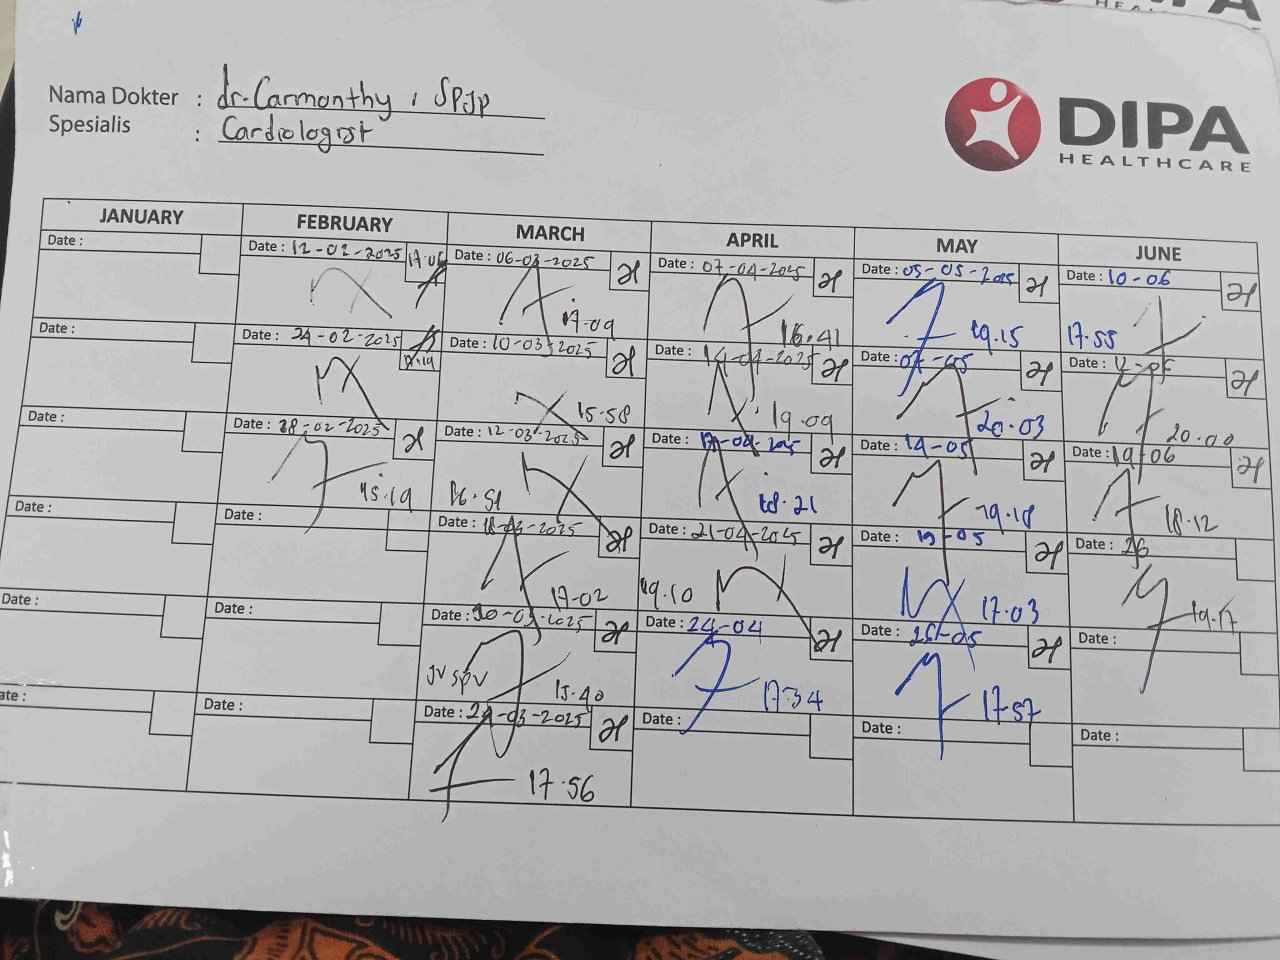 HEA
Nama Dokter : dr. Carmonthy, SPJP
Spesialis : Cardiologist
DIPA
HEALTHCARE
JANUARY FEBRUARY MARCH APRIL MAY JUNE
Date : Date : 12-02-2025 17.06 Date : 06-03-2025 Date : 07-04-2025 Date : 05-05-2025 Date : 10-06
17.09 16.41 19.15 17.55
Date : Date : 24-02-2025 17.19 Date : 10-03-2025 Date : 14-04-2025 Date : 07-05 Date :
15.58 19.09 20.03 20.00
Date : Date : 28-02-2025 Date : 12-03-2025 Date : 17-04-2025 Date : 14-05 Date : 19-06
15.19 16.51 18.21 19.18 18.12
Date : Date : Date : 18-03-2025 Date : 21-04-2025 Date : 19-05 Date : 26
17-02 19.10 17.03 19.17
Date : Date : Date : 20-03-2025 Date : 24-04 Date : 26-05 Date :
JV SPV 15.40 17.34 17.57
Date : Date : Date : 24-03-2025 Date : Date : Date :
17.56